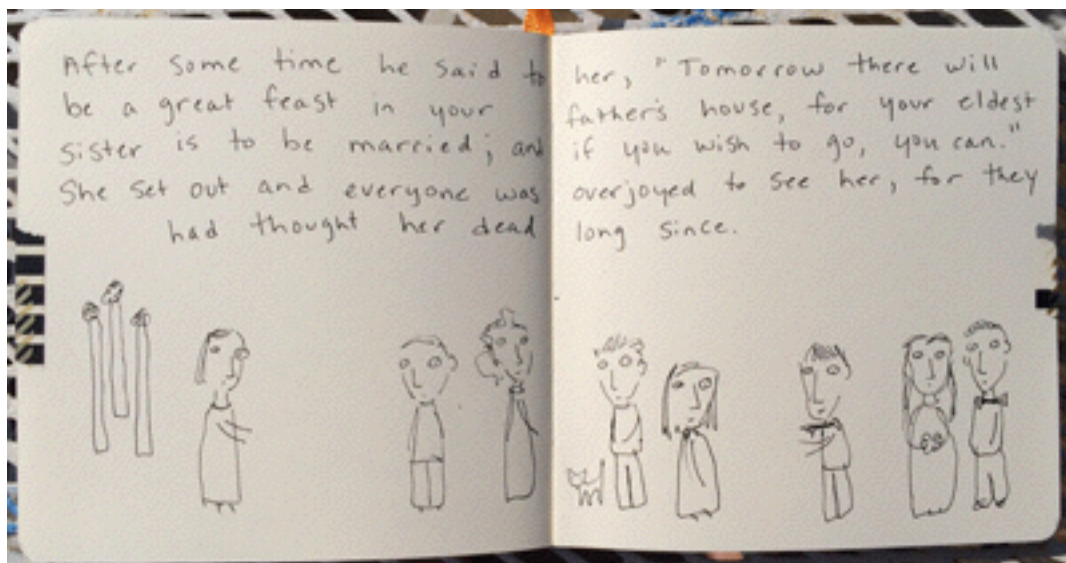 After some time he said to her, "Tomorrow there will
be a great feast in your father's house, for your eldest
sister is to be married; and if you wish to go, you can."
She set out and everyone was overjoyed to see her, for they
had thought her dead long since.